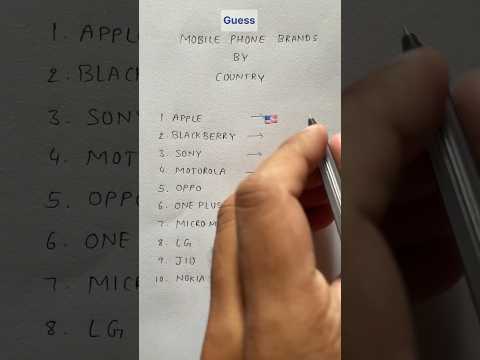 Guess
MOBILE PHONE BRANDS
BY
COUNTRY
1 APPLE →
2. BLACKBERRY →
3. SONY →
4. MOTOROLA
5. OPPO
6. ONE PLUS
7. MICROM
8. LG
9. JIO
10. NOKIA
1. APPLE
2. BLACK
3. SONY
4. MOT
5. OPPO
6. ONE
7. MICR
8. LG